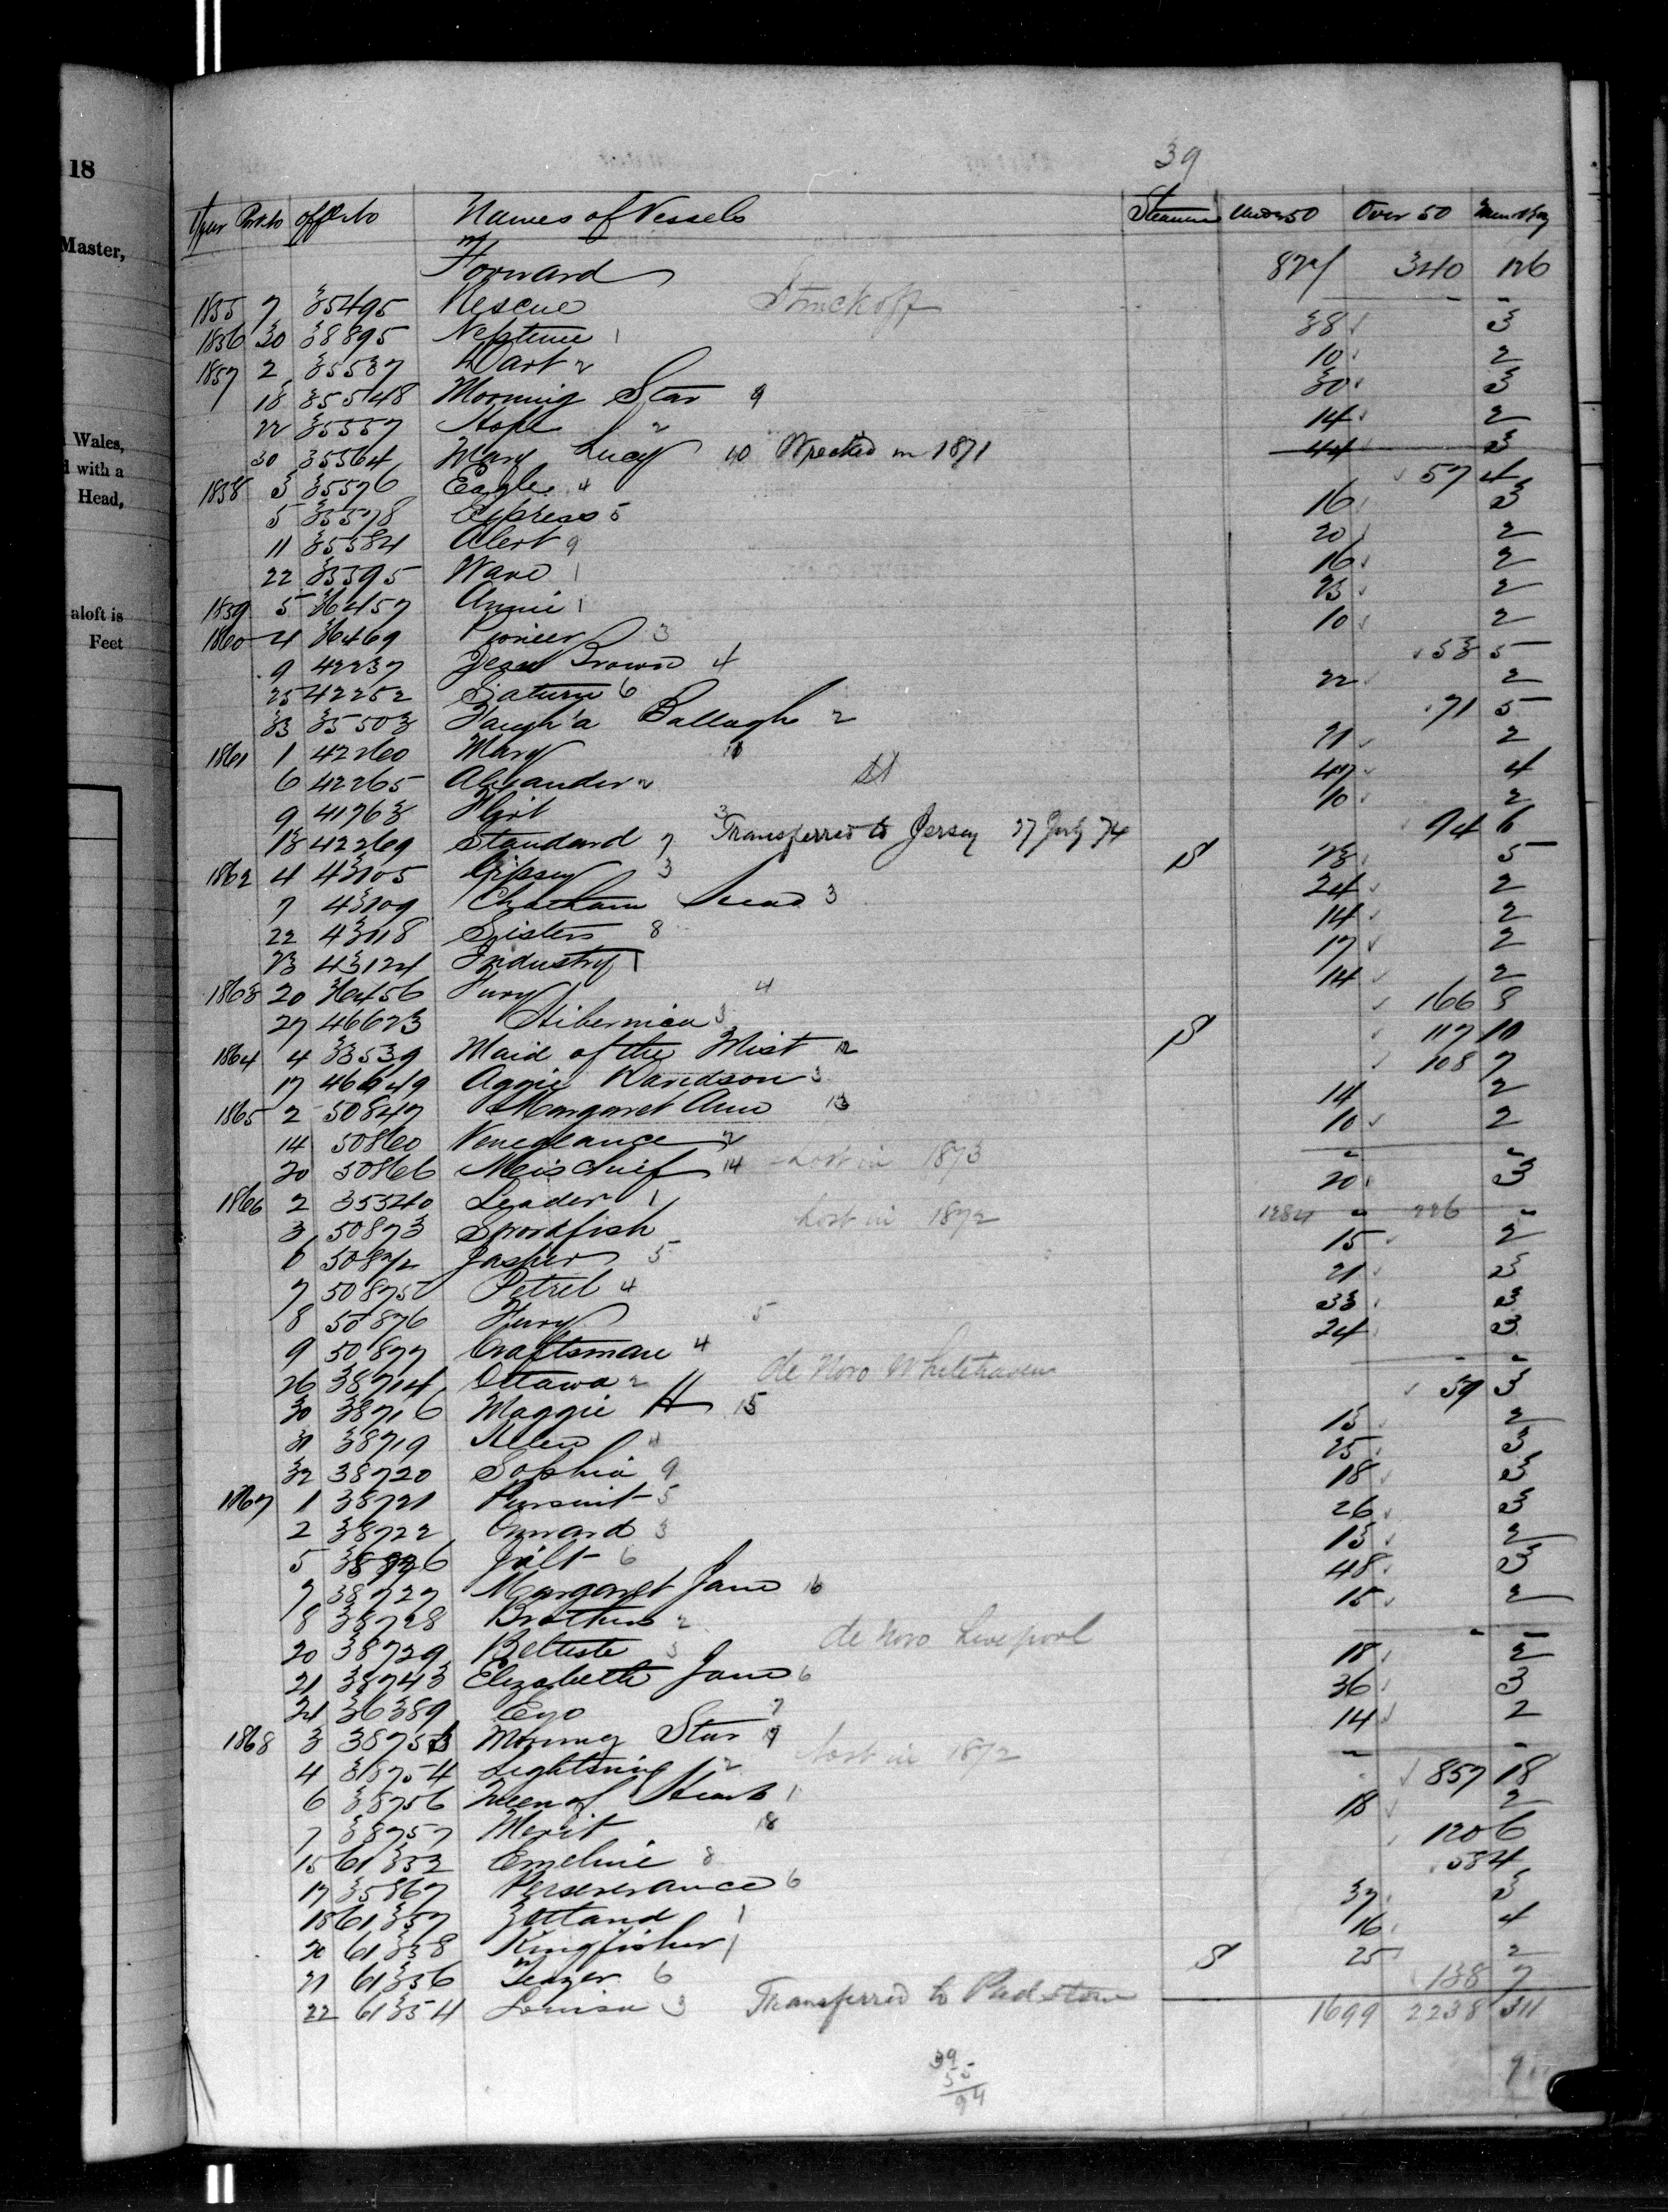 18
Master,
Wales,
with a
Head,
aloft is
Feet
39
Year Port No Off No Names of Vessels Steamers Under 50 Over 50 Men & Boy
Forward 877 340 126
1855 7 35495 Rescue Struck off - -
1856 30 38895 Neptune 1 38 3
1857 2 35537 Dart 2 10 2
18 35548 Morning Star 9 30 3
22 35557 Hope 2 14 2
30 35564 Mary Lucy 10 Wrecked in 1871 44 3
1858 3 35576 Eagle 4 57 4
5 35578 Express 5 16 3
11 35584 Alert 9 20 2
22 35595 Wave 1 16 2
1859 5 36457 Annie 1 23 2
1860 4 36469 Pioneer 3 10 2
9 42237 Jean Brown 4 53 5
25 42252 Saturn 6 22 2
33 35503 Faugh a Ballagh 2 71 5
1861 1 42260 Mary 10 21 2
6 42265 Alexander 2 47 4
9 41763 Flirt 3 10 2
13 42269 Standard 7 Transferred to Jersey 27 July 74 94 6
1862 4 43105 Gipsey 3 S 23 5
7 43109 Chatham Head 3 24 2
22 43118 Sisters 8 14 2
23 43124 Industry 1 17 2
1863 20 36456 Fury 4 14 2
27 46623 Hibernica 3 166 8
1864 4 33539 Maid of the Mist 12 S 117 10
17 46649 Aggie Davidson 3 108 7
1865 2 50847 Margaret Ann 13 14 2
14 50860 Venegeance 2 10 2
20 50866 Meischief 14 Lost in 1873 - -
1866 2 35340 Leader 1 20 3
3 50873 Swordfish Lost in 1872 1284 - 226 -
6 50872 Jasher 5 15 2
7 50875 Petrel 4 21 3
8 50876 Fury 5 33 3
9 50877 Craftsman 4 24 3
26 38714 Ottawa 2 de Novo Whitehaven - -
30 38716 Maggie H 15 59 3
31 38719 Helen 4 13 2
32 38720 Sophia 9 25 3
1867 1 38721 Pursuit 5 18 3
2 38722 Onward 3 26 3
5 38726 Jilt 6 13 2
7 38727 Margaret Jane 16 48 3
8 38728 Brothers 2 15 2
20 38729 3 de Novo Liverpool - -
21 38743 Elizabeth Jane 6 18 2
24 36389 Ego 7 36 3
1868 3 38753 Morning Star 17 14 2
4 38754 Lightning 2 Lost in 1872 - -
6 38756 Queen of Hearts 1 857 18
7 38757 Merit 18 18 2
15 61332 Emeline 8 120 6
17 35867 Perseverance 6 58 4
18 61337 Zetland 1 37 3
20 61338 Kingfisher 1 16 4
21 61336 Teazer 6 S 25 2
22 61354 Louisa 3 Transferred to Padstow 138 7
1699 2238 311
39
55
94